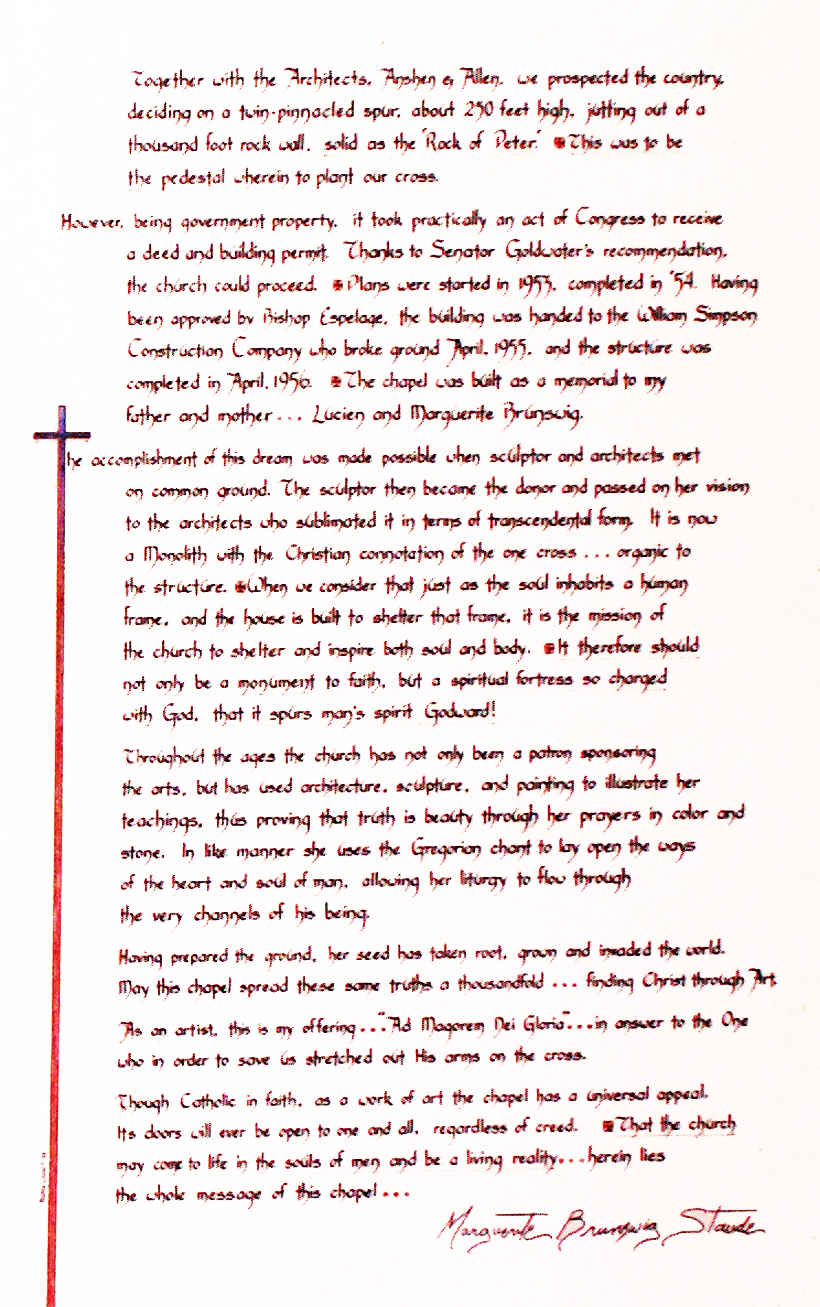 Together with the Architects, Anshen & Allen, we prospected the country,
deciding on a twin-pinnacled spur, about 250 feet high, jutting out of a
thousand foot rock wall, solid as the "Rock of Peter." ✠ This was to be
the pedestal wherein to plant our cross.
However, being government property, it took practically an act of Congress to receive
a deed and building permit. Thanks to Senator Goldwater's recommendation,
the church could proceed. ✠ Plans were started in 1953, completed in '54. Having
been approved by Bishop Espelage, the building was handed to the William Simpson
Construction Company who broke ground April, 1955, and the structure was
completed in April, 1956. ✠ The chapel was built as a memorial to my
father and mother... Lucien and Marguerite Brunswig.
The accomplishment of this dream was made possible when sculptor and architects met
on common ground. The sculptor then became the donor and passed on her vision
to the architects who sublimated it in terms of transcendental form. It is now
a Monolith with the Christian connotation of the one cross ... organic to
the structure. ✠ When we consider that just as the soul inhabits a human
frame, and the house is built to shelter that frame, it is the mission of
the church to shelter and inspire both soul and body. ✠ It therefore should
not only be a monument to faith, but a spiritual fortress so charged
with God, that it spurs man's spirit Godward!
Throughout the ages the church has not only been a patron sponsoring
the arts, but has used architecture, sculpture, and painting to illustrate her
teachings, thus proving that truth is beauty through her prayers in color and
stone. In like manner she uses the Gregorian chant to lay open the ways
of the heart and soul of man, allowing her liturgy to flow through
the very channels of his being.
Having prepared the ground, her seed has taken root, grown and invaded the world.
May this chapel spread these same truths a thousandfold ... finding Christ through Art.
As an artist, this is my offering..."Ad Magorem Dei Gloria"...in answer to the One
who in order to save us stretched out His arms on the cross.
Though Catholic in faith, as a work of art the chapel has a universal appeal.
Its doors will ever be open to one and all, regardless of creed. ✠ That the church
may come to life in the souls of men and be a living reality...herein lies
the whole message of this chapel...
Marguerite Brunswig Staude